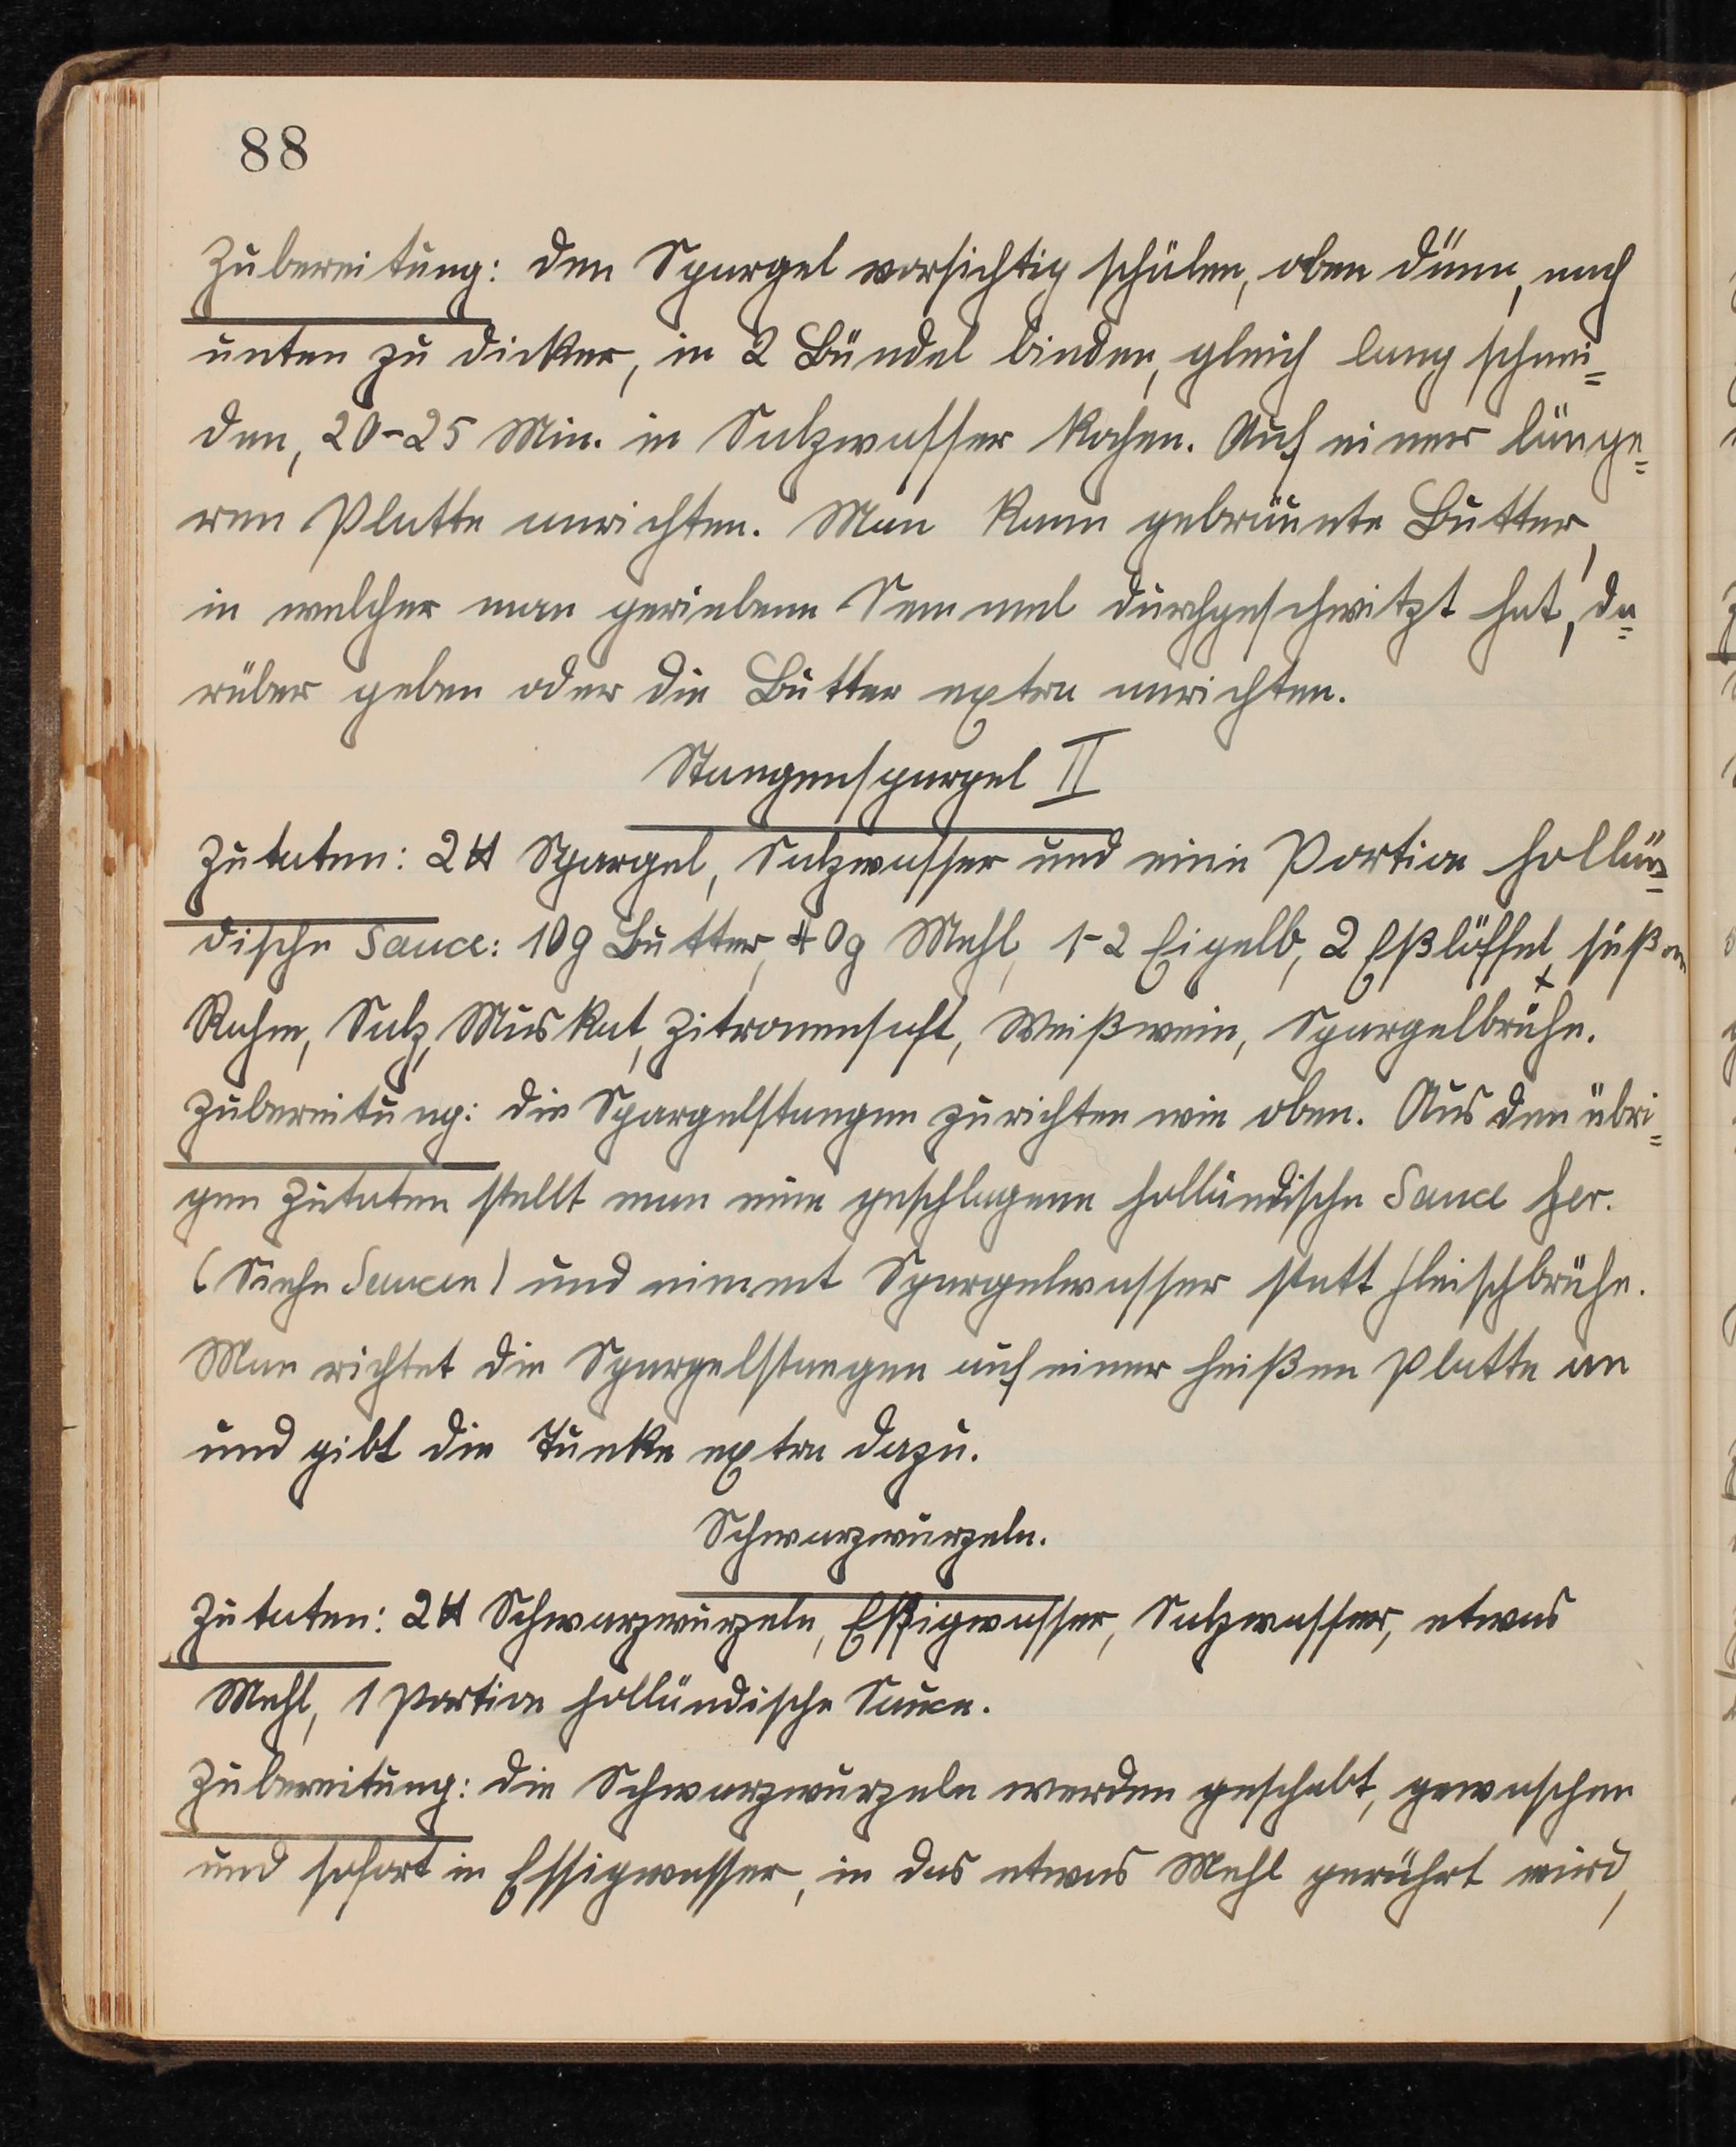 88
Zubereitung: den Spargel vorsichtig schälen, oben dünn, nach
unten zu dicker, in 2 Bündel binden, gleich lang schnei=
den, 20-25 Min. in Salzwasser kochen. Auf einer länge=
ren Platte anrichten. Man kann gebräunte Butter,
in welcher man geriebene Semmel durchgeschwitzt hat, da=
rüber geben oder die Butter extra anrichten.
Stangenspargel II
Zutaten: 2 ℔ Spargel, Salzwasser und eine Portion hollän=
dische Sauce: 10g Butter, 40g Mehl, 1-2 Eigelb, 2 Eßlöffel süßen
Rahm, Salz, Muskat, Zitronensaft, Weißwein, Spargelbrühe.
Zubereitung: die Spargelstangen zurichten wie oben. Aus den übri=
gen Zutaten stellt man eine geschlagene holländische Sauce her.
(Siehe Saucen) und nimmt Spargelwasser statt Fleischbrühe.
Man richtet die Spargelstangen auf einer heißen Platte an
und gibt die Tunke extra dazu.
Schwarzwurzeln.
Zutaten: 2 ℔ Schwarzwurzeln, Eßigwasser, Salzwasser, etwas
Mehl, 1 Portion holländische Sauce.
Zubereitung: die Schwarzwurzeln werden geschabt, gewaschen
und sofort in Essigwasser, in das etwas Mehl gerührt wird,